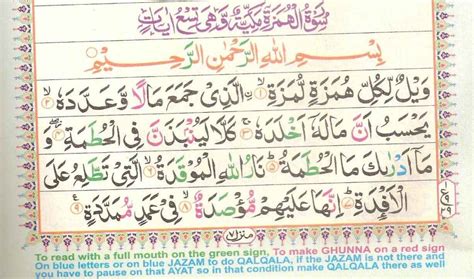 سُوْرَةُ الْهُمَزَةِ مَكِّيَّةٌ وَّهِيَ تِسْعُ اٰيَاتٍ
بِسْمِ اللّٰهِ الرَّحْمٰنِ الرَّحِيْمِ
وَيْلٌ لِّكُلِّ هُمَزَةٍ لُّمَزَةِ ۙ﴿۱﴾ الَّذِيْ جَمَعَ مَالًا وَّعَدَّدَهٗ ۙ﴿۲﴾
يَحْسَبُ اَنَّ مَالَهٗۤ اَخْلَدَهٗ ۚ﴿۳﴾ كَلَّا لَيُنْۢبَذَنَّ فِي الْحُطَمَةِ ۖ﴿۴﴾ وَ
مَاۤ اَدْرٰىكَ مَا الْحُطَمَةُ ؕ﴿۵﴾ نَارُ اللّٰهِ الْمُوْقَدَةُ ۙ﴿۶﴾ الَّتِيْ تَطَّلِعُ عَلَى
الْاَفْـِٕدَةِ ؕ﴿۷﴾ اِنَّهَا عَلَيْهِمْ مُّؤْصَدَةٌ ۙ﴿۸﴾ فِيْ عَمَدٍ مُّمَدَّدَةٍ ﴿۹﴾
۱ ع ۹ ۲۹
منزل ۷
To read with a full mouth on the green sign, To make GHUNNA on a red sign
On blue letters or on blue JAZAM to do QALQALA. if the JAZAM is not there and
you have to pause on that AYAT so in that condition make QALQALA there as well